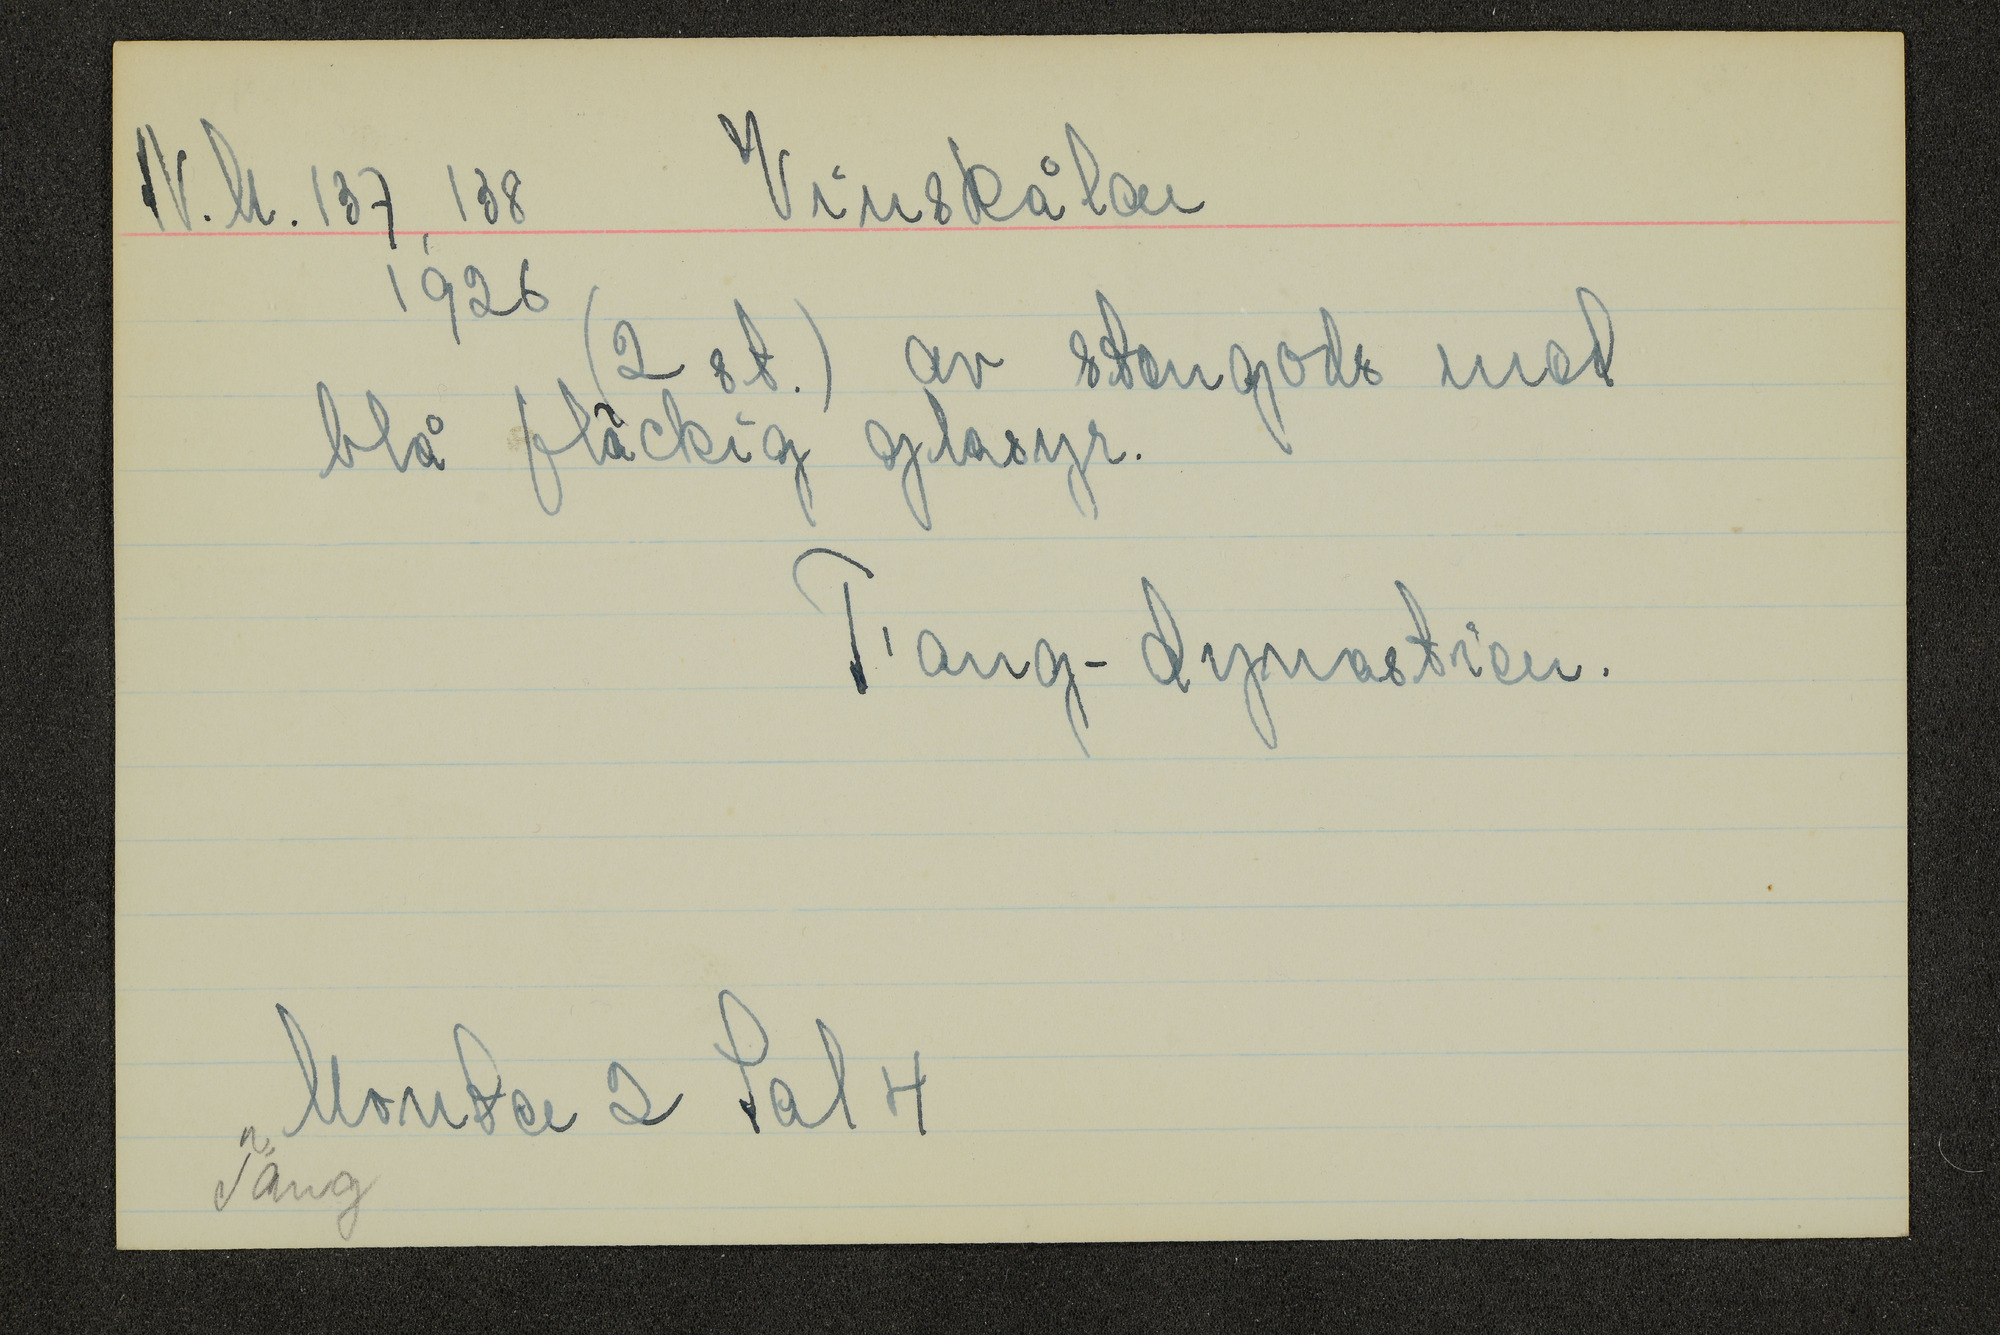 N.M. 137, 138 Vinskålar
1926
(2 st.) av stengods med
blå fläckig glasyr.
T'ang-dynastien.
Monter 2 Sal 4
T'ang